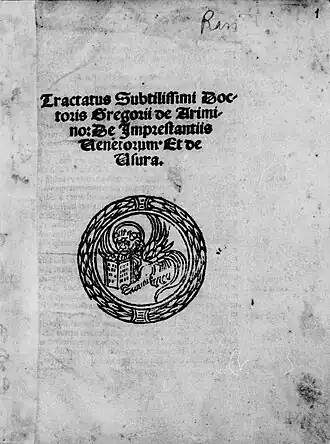 1
Tractatus Subtilissimi Doc-
toris Gregorii de Arimi-
no: De Imprestantiis
Venetorum. Et de
Usura.